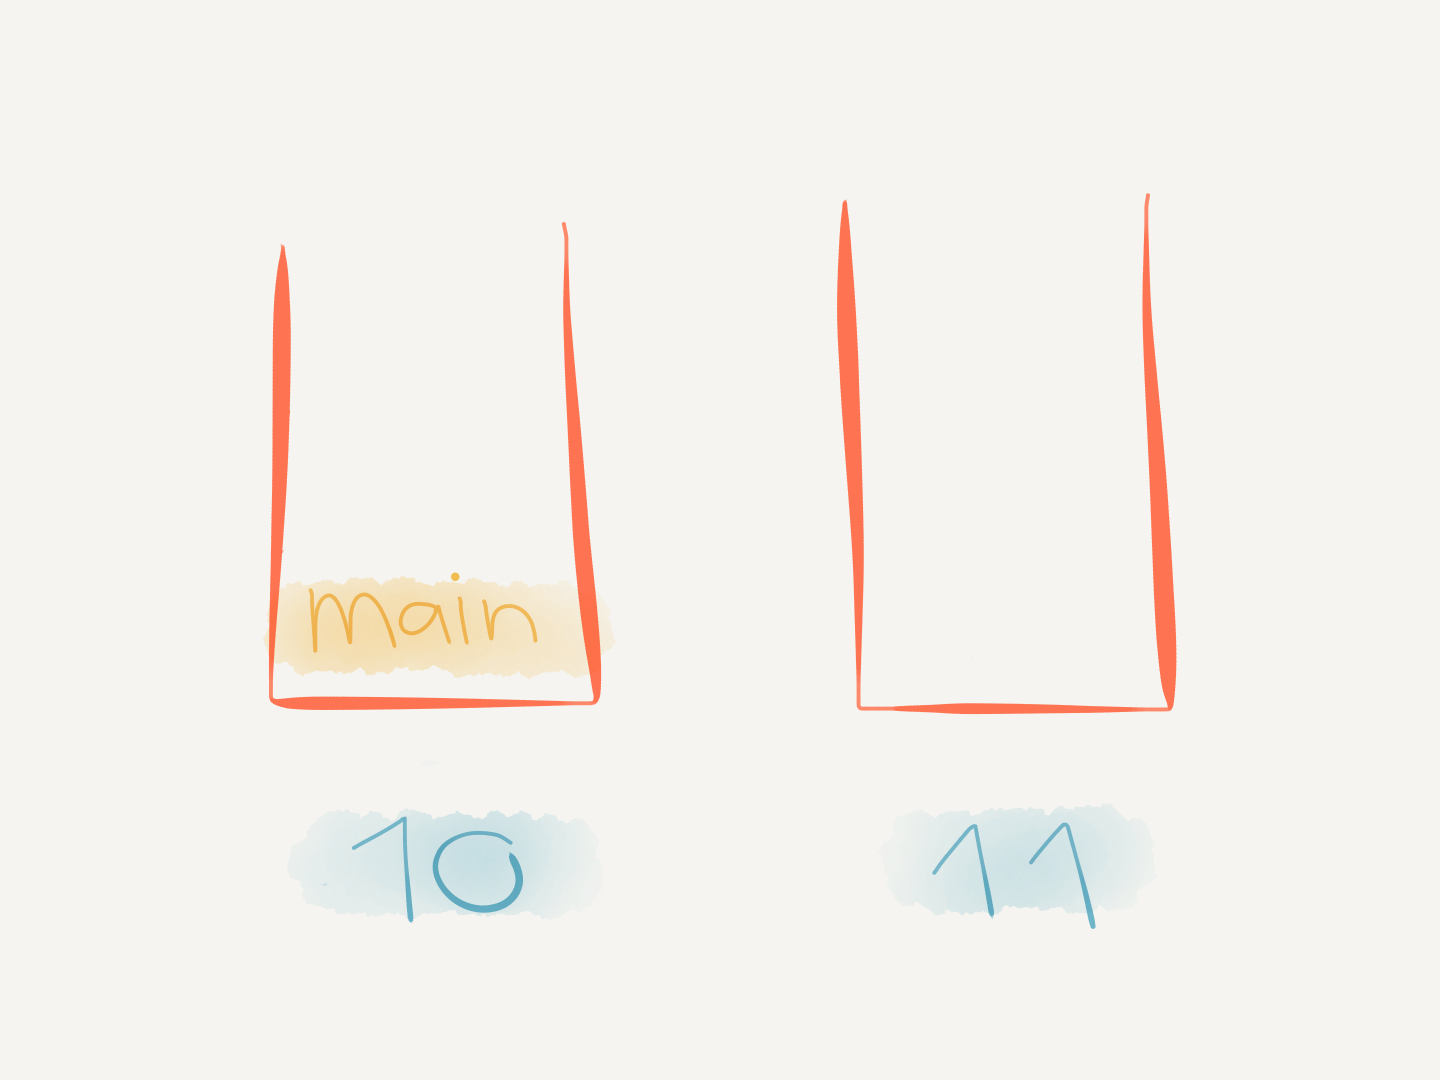 main
10
11